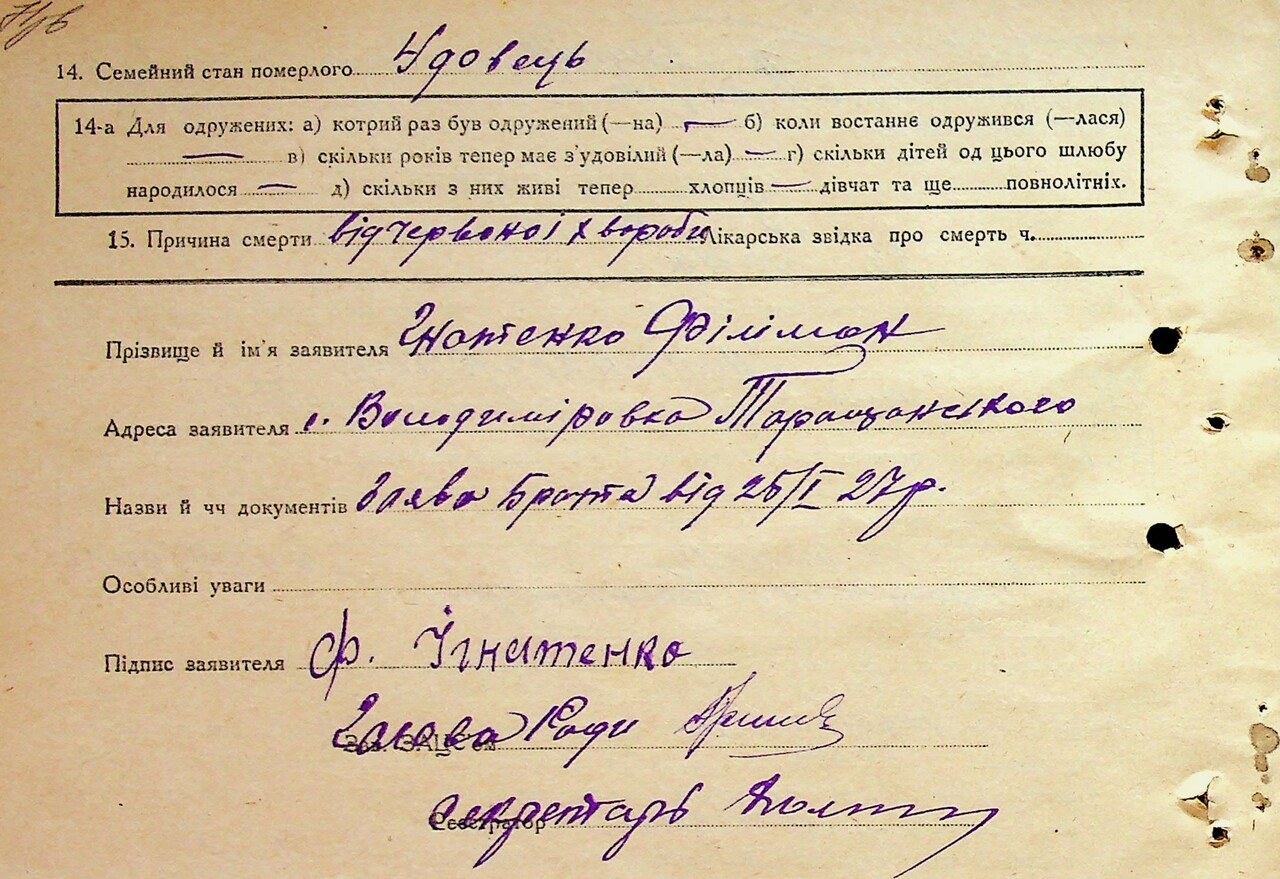 14. Семейний стан померлого Удовець
14-а Для одружених: а) котрий раз був одружений (—на) — б) коли востаннє одружився (—лася)
— в) скільки років тепер має з'удовілий (—ла) — г) скільки дітей од цього шлюбу
народилося — д) скільки з них живі тепер хлопців — дівчат та ще повнолітніх.
15. Причина смерти від червоної хвороби Лікарська звідка про смерть ч.
Прізвище й ім'я заявителя Гнатенко Філімон
Адреса заявителя с. Володиміровка Таращанського
Назви й чч документів Заява брата від 25/I 27 р.
Особливі уваги
Підпис заявителя Ф. Ігнатенко
Голова Ради
Секретарь
Реєстратор